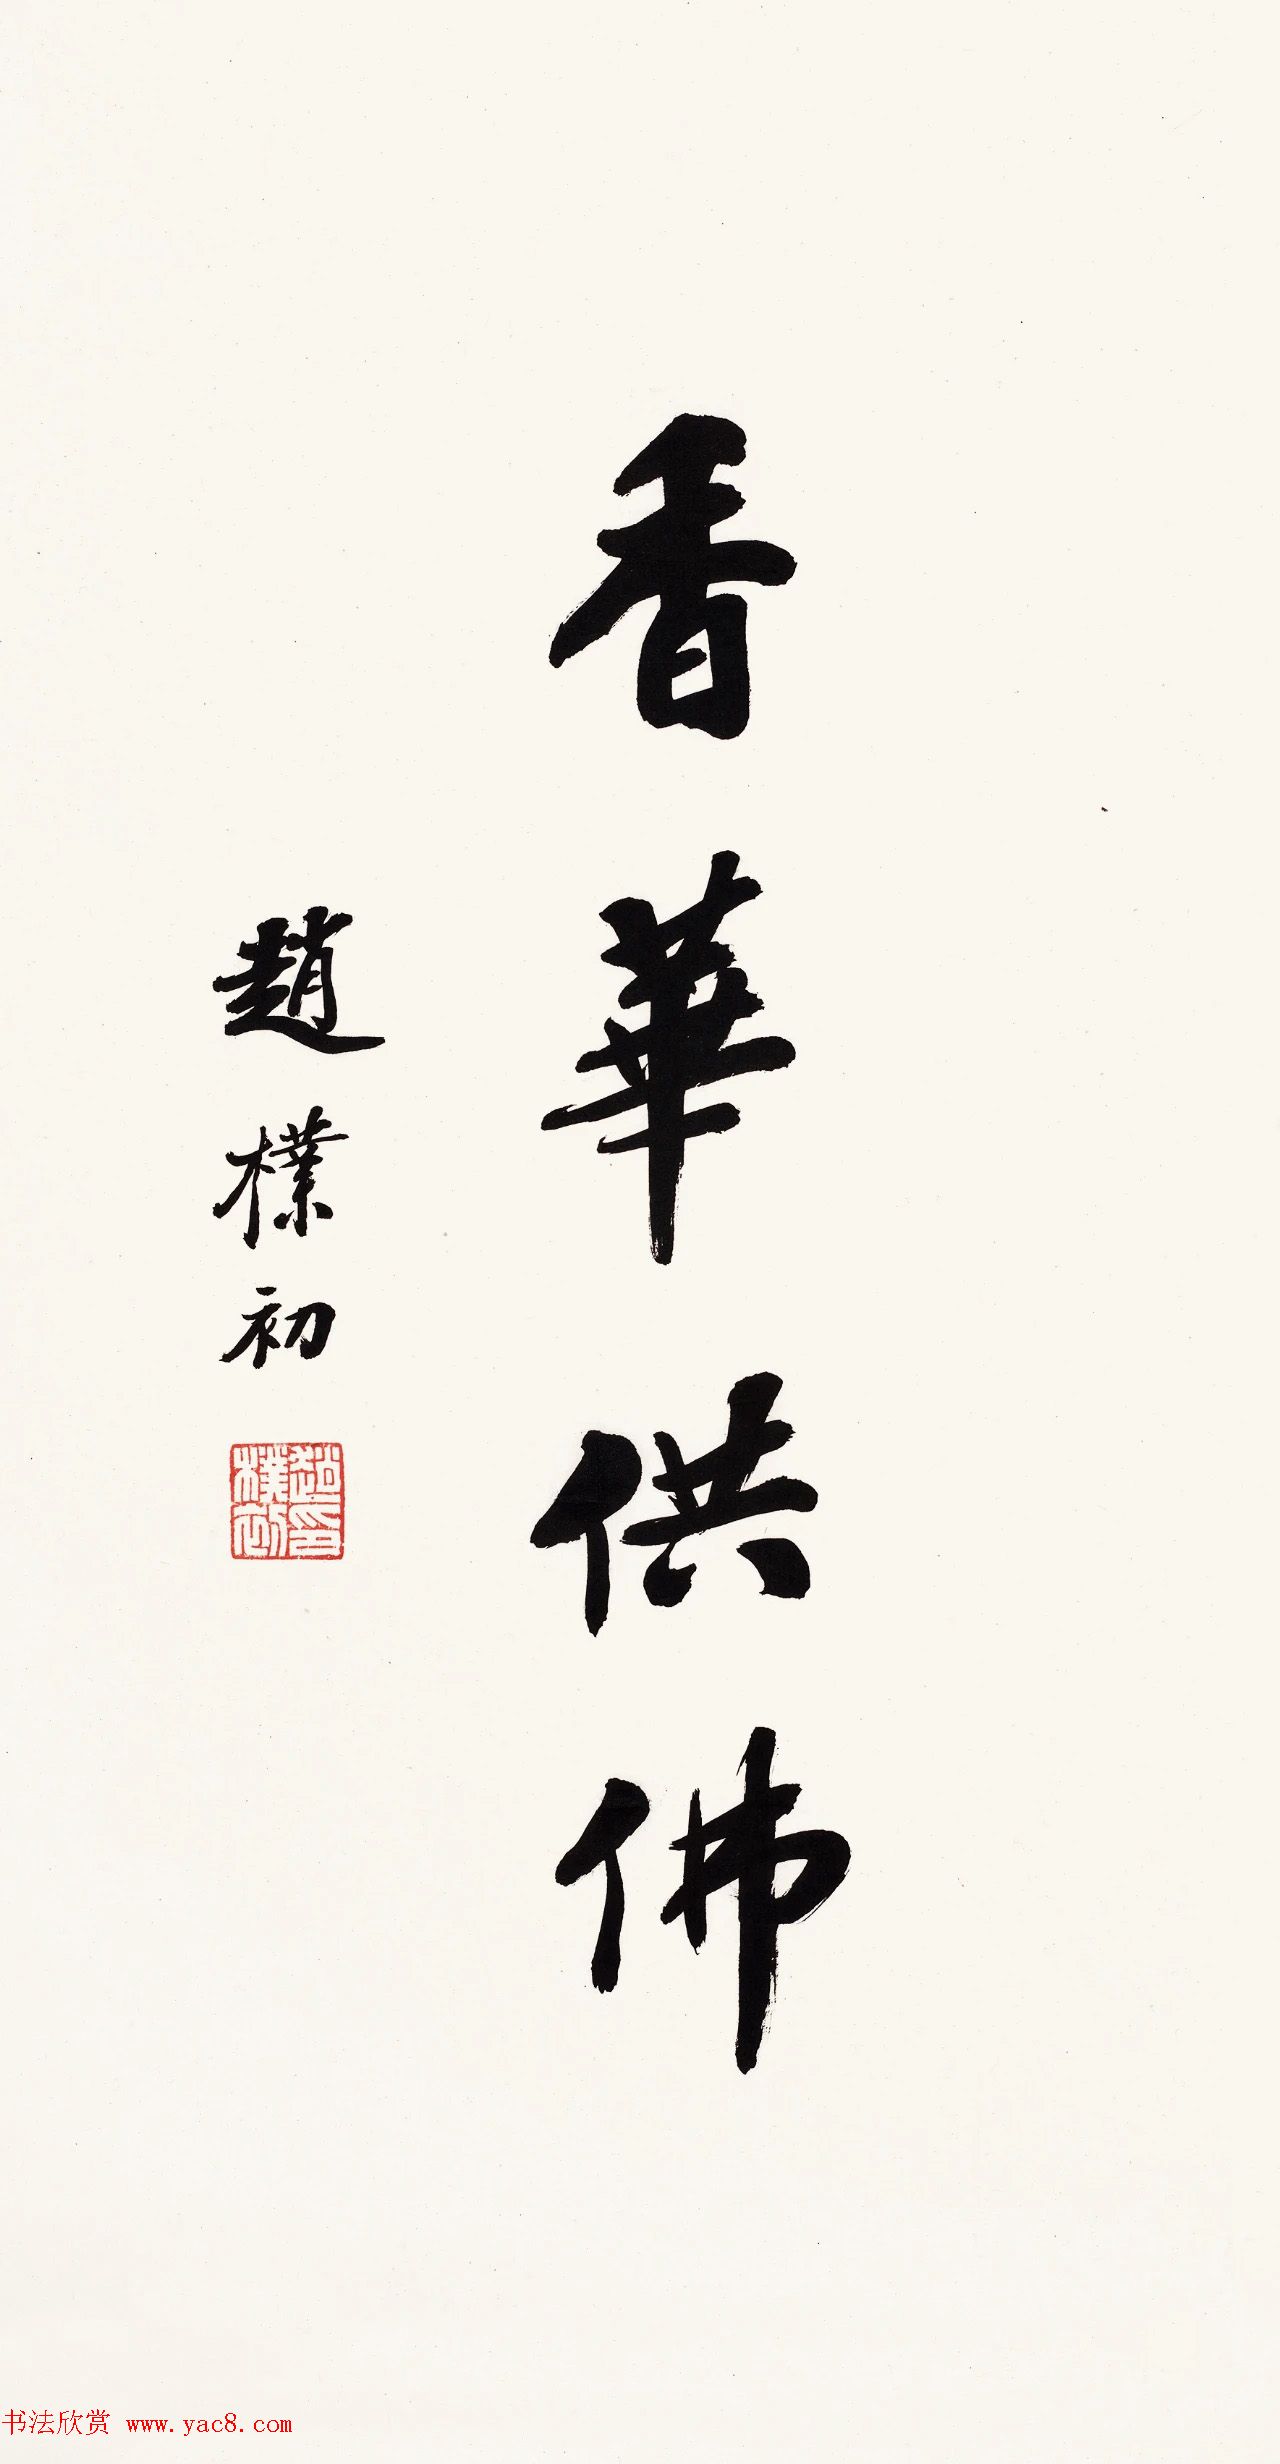 香華供佛
趙樸初
趙樸初印
书法欣赏 www.yac8.com